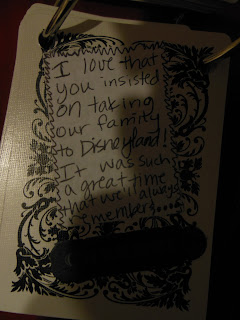 I love that
you insisted
on taking
our family
to Disneyland!
It was such
a great time
that we'll always
remember....